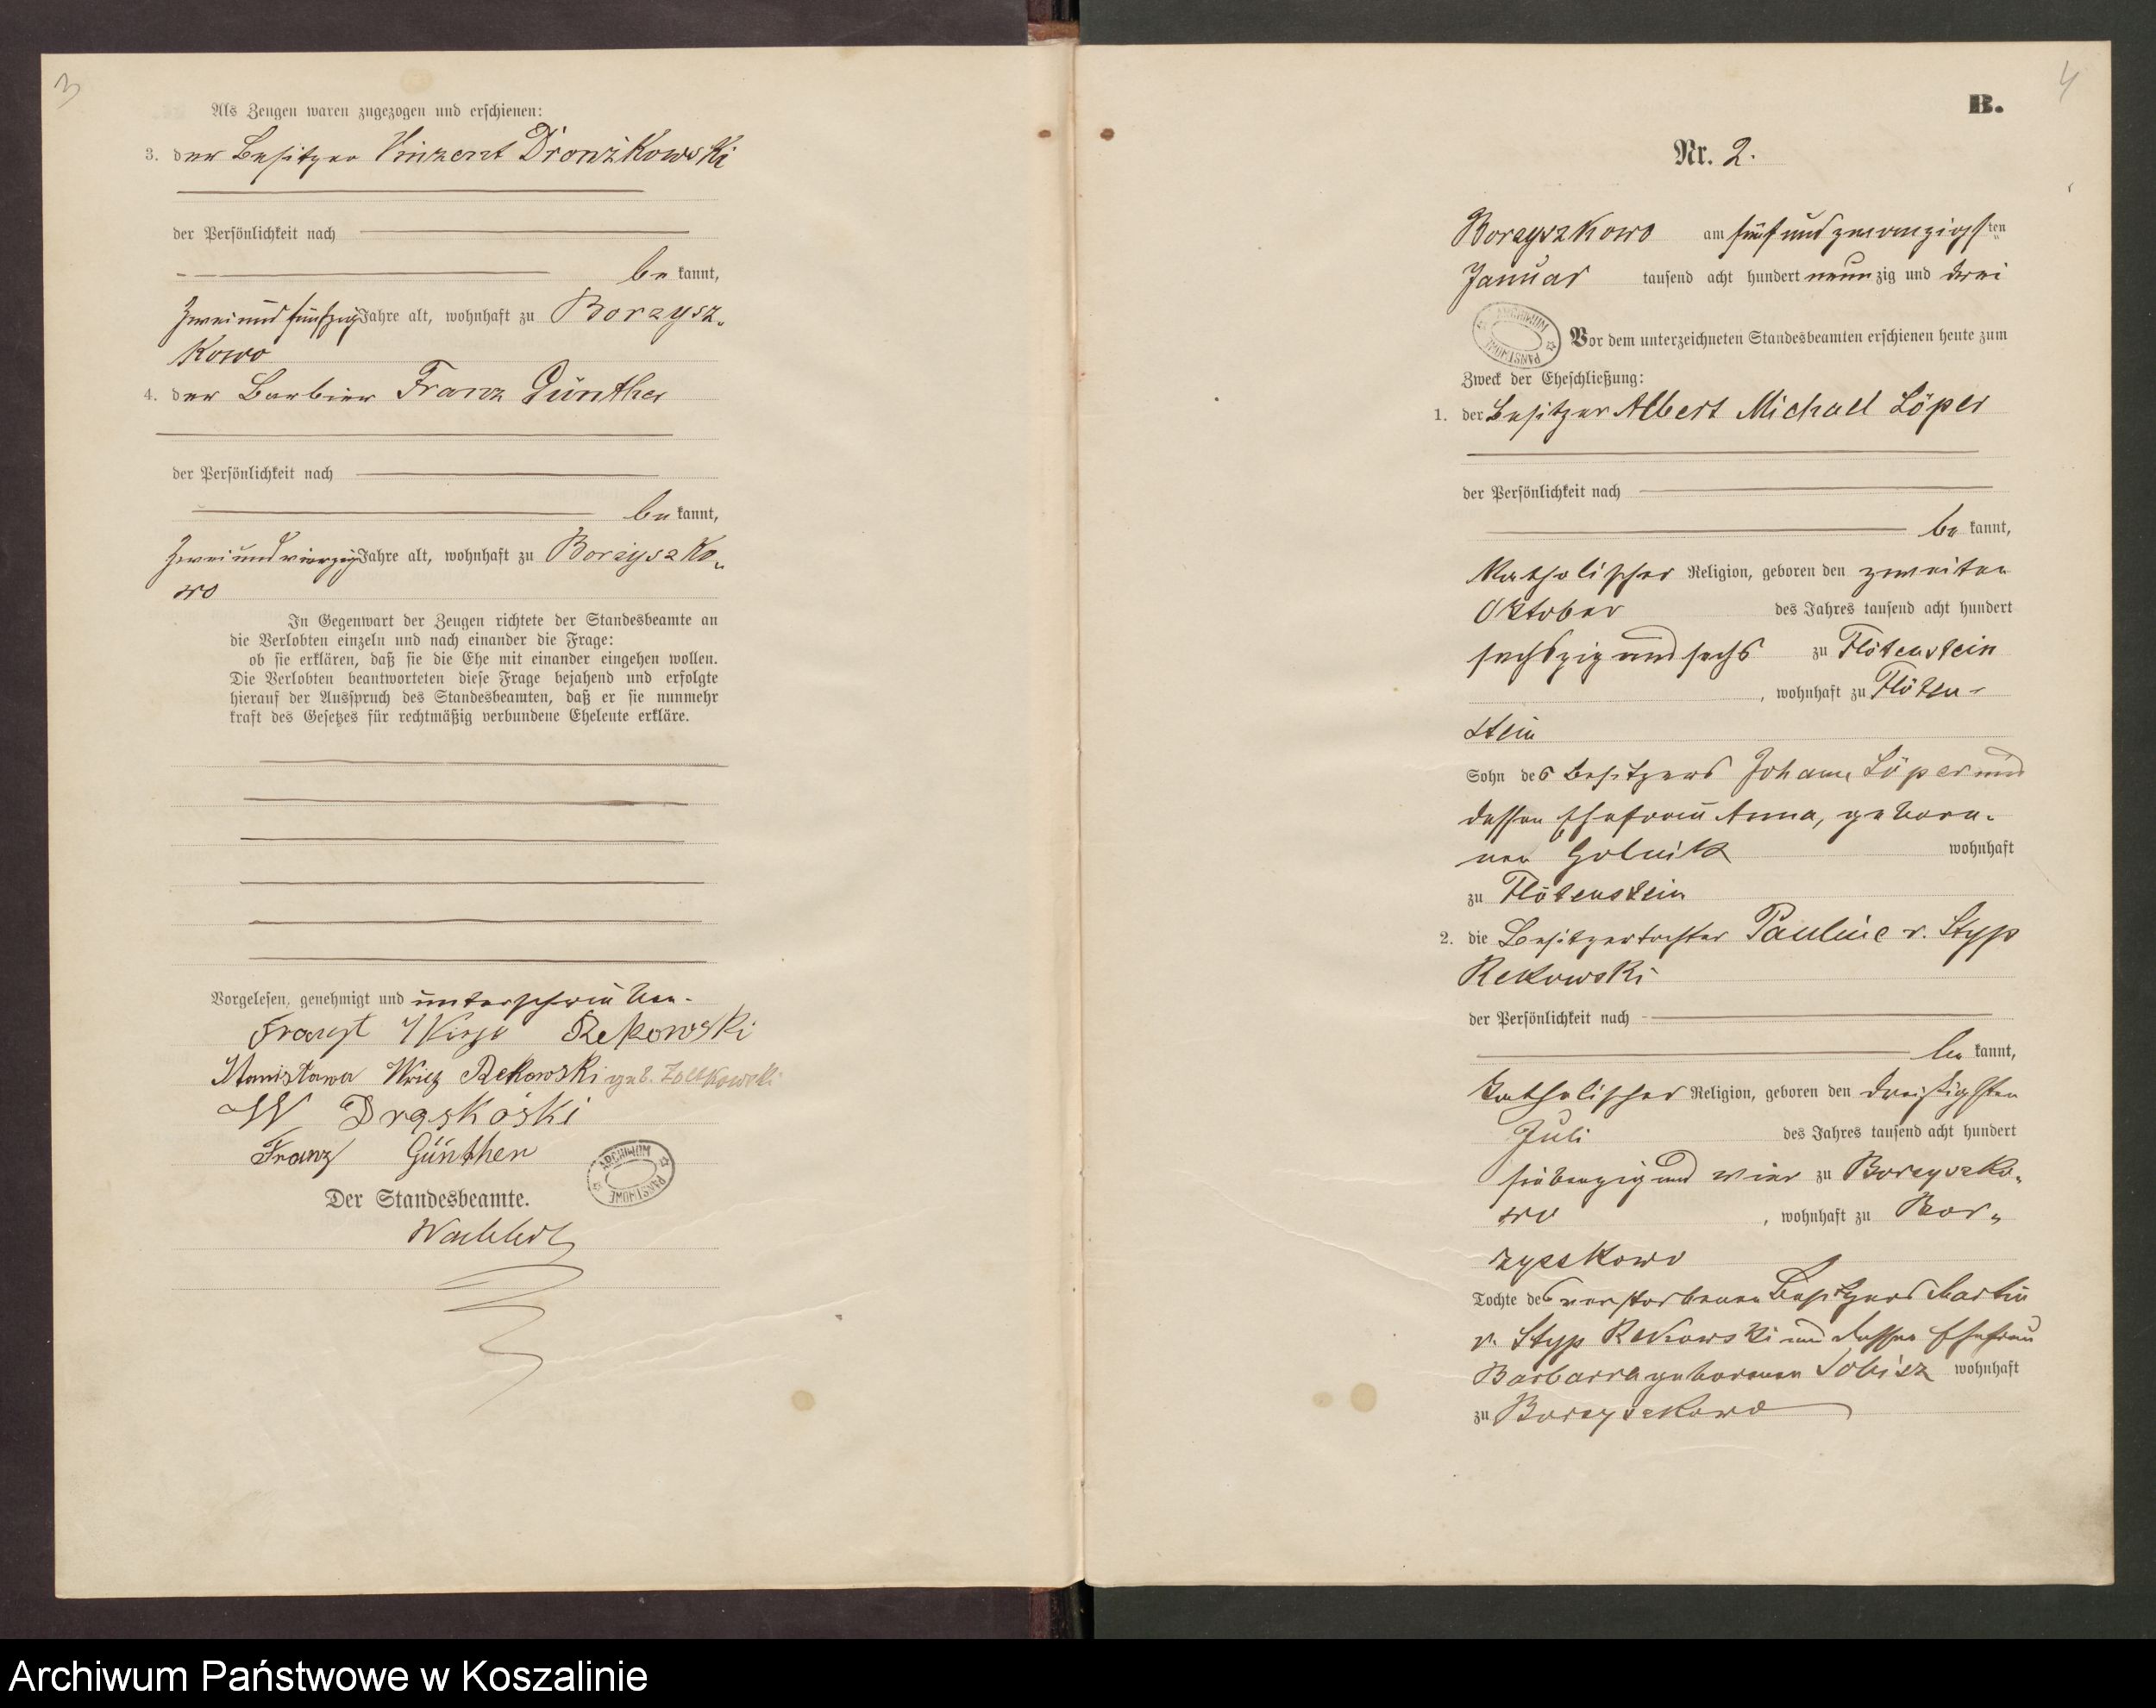 3
Als Zeugen waren zugezogen und erschienen:
3. der Besitzer Vinzent Dronzkowski
der Persönlichkeit nach
be kannt,
zweiundfünfzig Jahre alt, wohnhaft zu Borzysz-
kowo
4. der Barbier Franz Günther
der Persönlichkeit nach
be kannt,
zweiundvierzig Jahre alt, wohnhaft zu Borzyszko-
wo
In Gegenwart der Zeugen richtete der Standesbeamte an
die Verlobten einzeln und nach einander die Frage:
ob sie erklären, daß sie die Ehe mit einander eingehen wollen.
Die Verlobten beantworteten diese Frage bejahend und erfolgte
hierauf der Ausspruch des Standesbeamten, daß er sie nunmehr
kraft des Gesetzes für rechtmäßig verbundene Eheleute erkläre.
Vorgelesen, genehmigt und unterschrieben.
Rekowski
Stanisława Rekowski geb.
W
Franz Günther
ARCHIWUM PAŃSTWOWE
Der Standesbeamte.
4
B.
Nr. 2.
Borzyszkowo am fünfundzwanzigsten
Januar tausend acht hundert neunzig und drei
ARCHIWUM PAŃSTWOWE
Vor dem unterzeichneten Standesbeamten erschienen heute zum
Zweck der Eheschließung:
1. der Besitzer Albert Michael Löper
der Persönlichkeit nach
be kannt,
katholischer Religion, geboren den zweiten
Oktober des Jahres tausend acht hundert
sechszig und sechs zu Flötenstein
, wohnhaft zu Flöten-
stein
Sohn des Besitzers Johann Löper und
dessen Ehefrau Anna, gebore-
nen Golnik wohnhaft
zu Flötenstein
2. die Besitzertochter Pauline v. Styp
Rekowski
der Persönlichkeit nach
be kannt,
katholischer Religion, geboren den dreißigsten
Juli des Jahres tausend acht hundert
siebenzig und vier zu Borzyszko-
wo , wohnhaft zu Bor-
zyszkowo
Tochte des verstorbenen Besitzers Martin
v. Styp Rekowski und dessen Ehefrau
Barbarra geborenen wohnhaft
zu Borzyszkowo
Archiwum Państwowe w Koszalinie